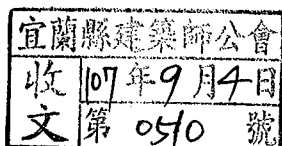 宜蘭縣建築師公會
收文
107年9月4日
第0510號